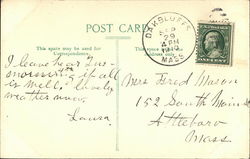 POST CARD
This space may be used for
Correspondence.
This space
address only.
OAK BLUFFS
SEP
29
4 PM
1910
MASS.
I leave hear Tues
morning if all
is well. lovely
weather now.
Louisa
Mrs Fred Mason
152 South Main St
Attleboro
Mass